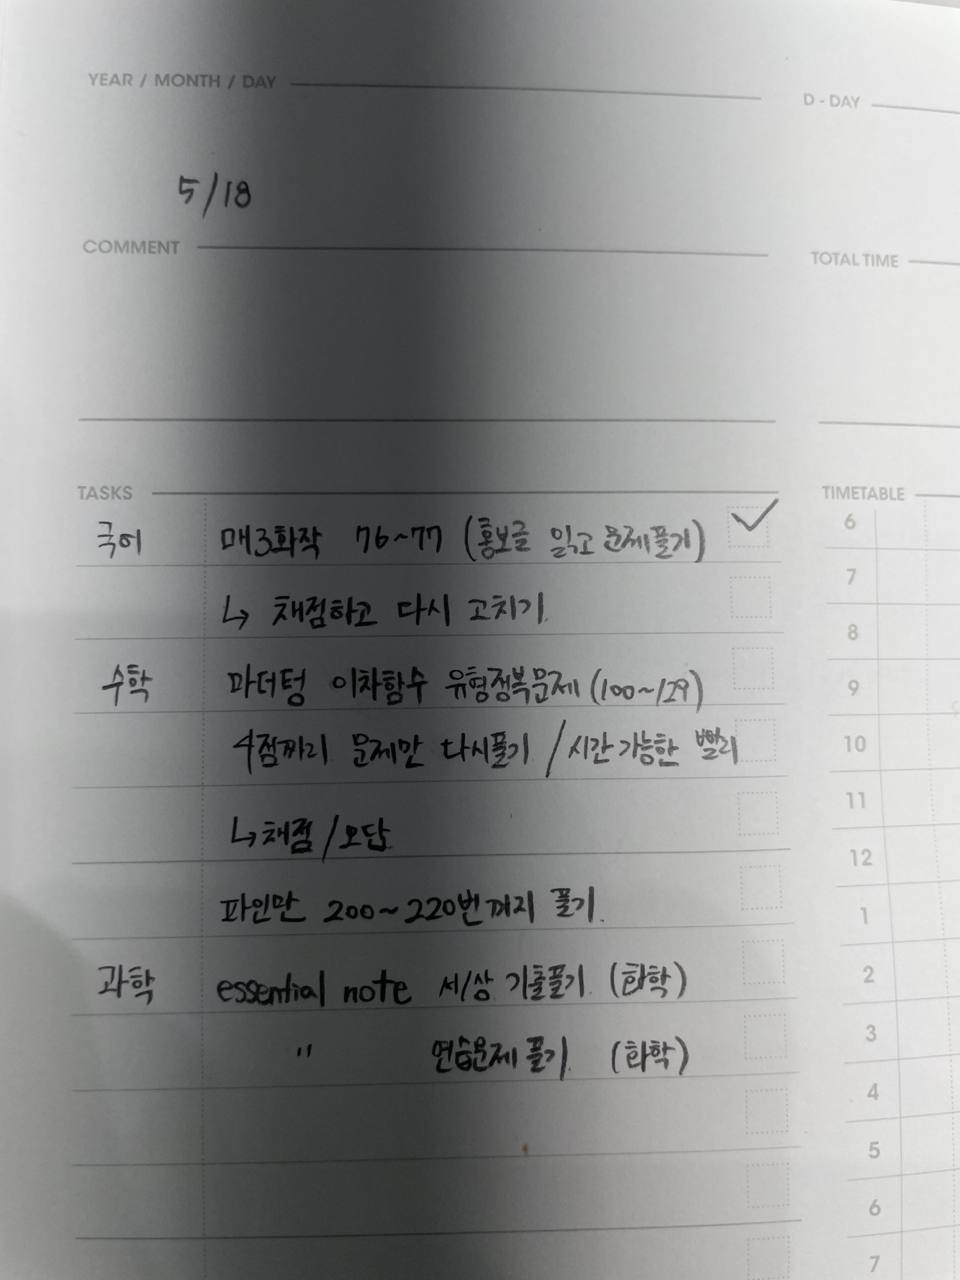 YEAR / MONTH / DAY
D - DAY
5/18
COMMENT
TOTAL TIME
TASKS
TIMETABLE
국어 매3화작 76~77 (홍보글 읽고 문제풀기)
↳ 채점하고 다시 고치기.
수학 마더텅 이차함수 유형정복문제 (100~129)
4점짜리 문제만 다시풀기 / 시간 가능한 빨리
↳ 채점 / 오답
파인만 200~220번까지 풀기.
과학 essential note 서/상 기출풀기. (화학)
" 연습문제 풀기. (화학)
6
7
8
9
10
11
12
1
2
3
4
5
6
7